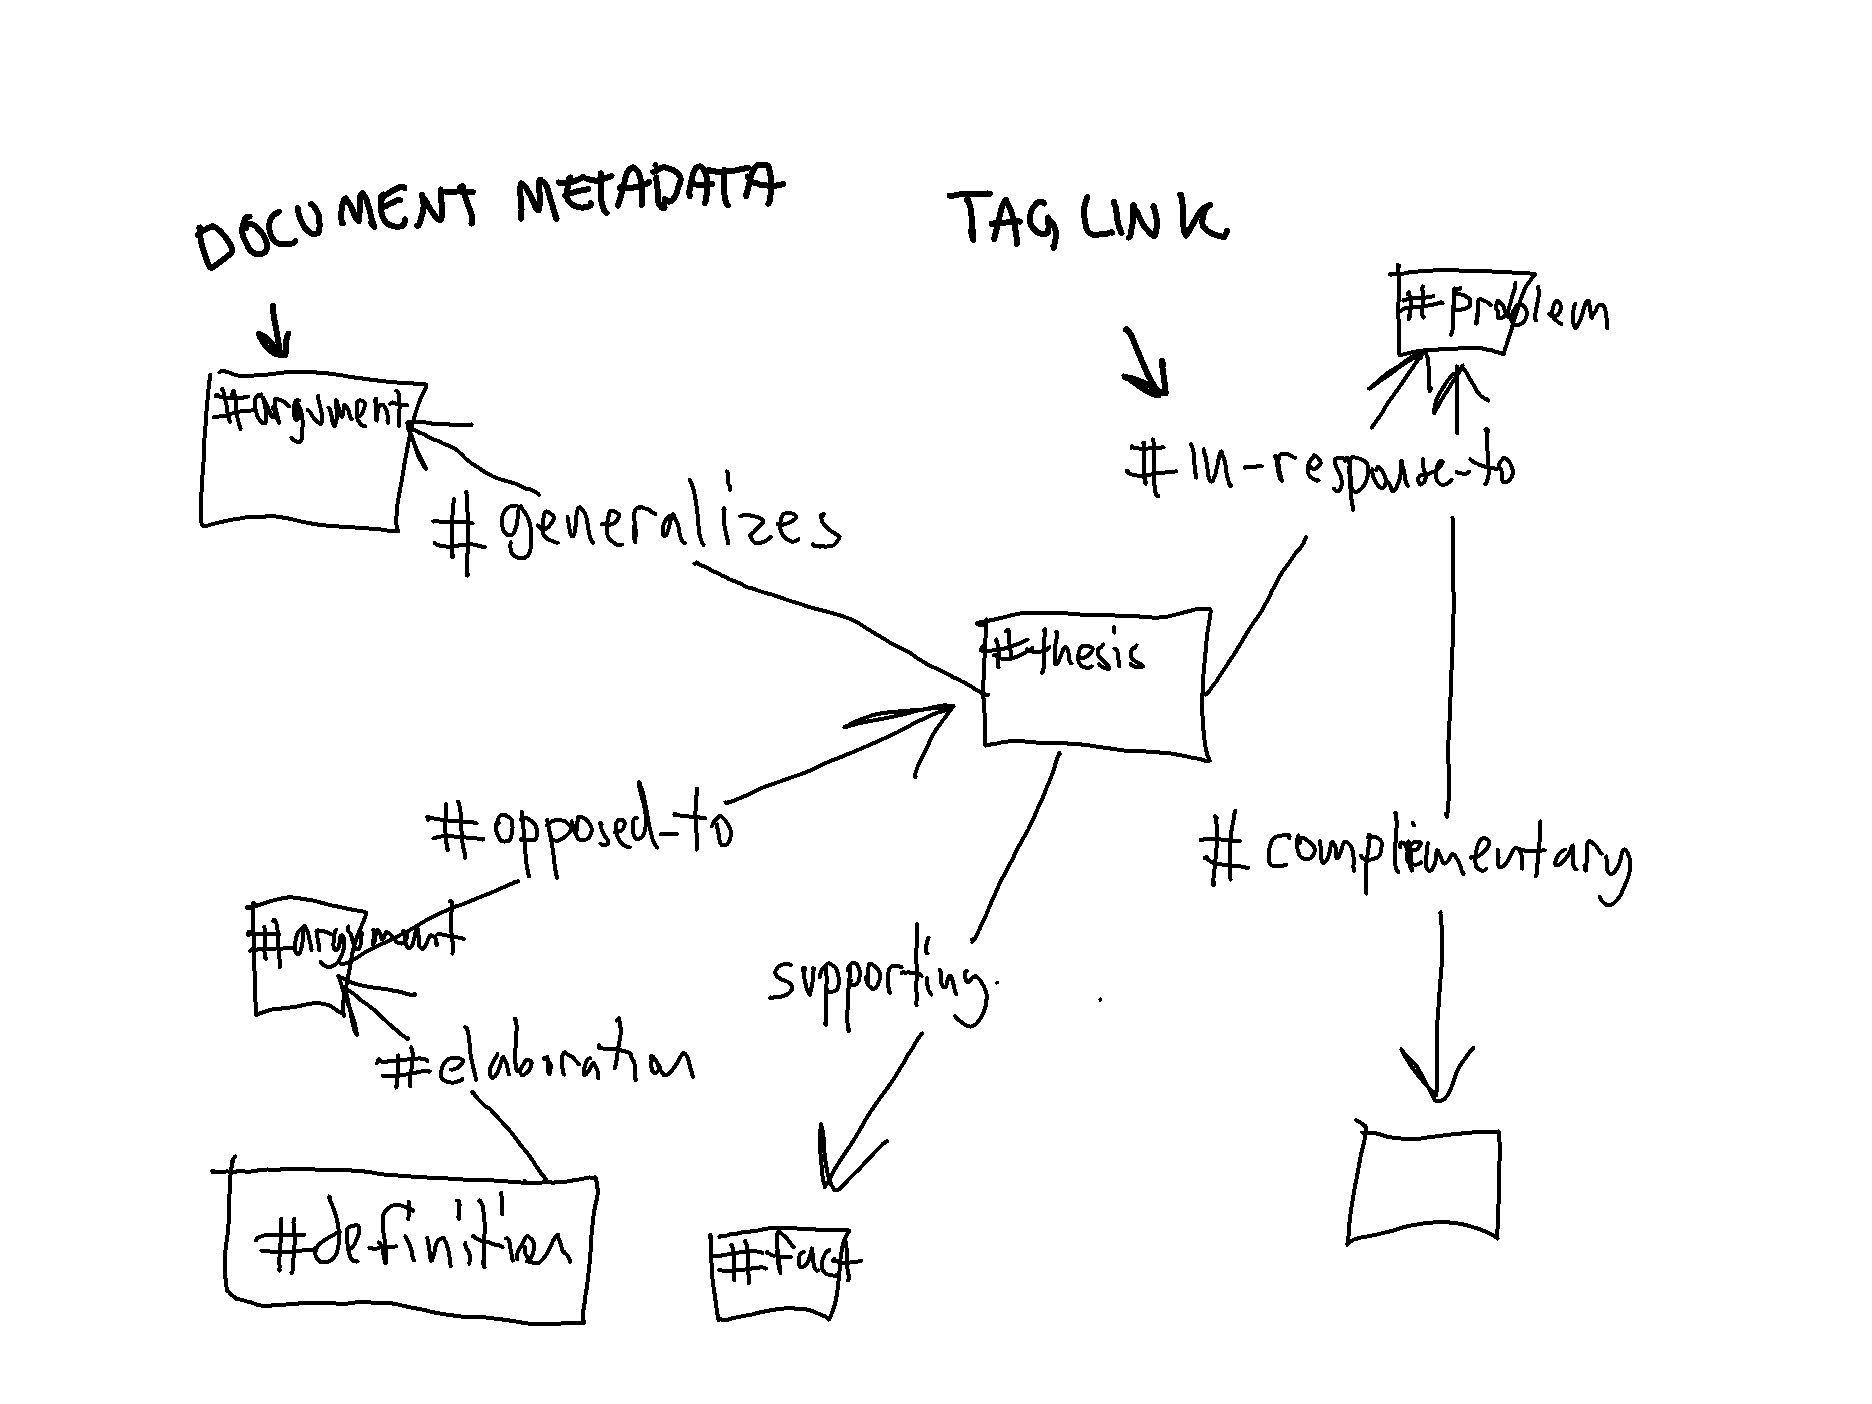 DOCUMENT METADATA
TAG LINK
#problem
#argument
#in-response-to
#generalizes
#thesis
#opposed-to
#complimentary
#argument
supporting
#elaboration
#definition
#fact